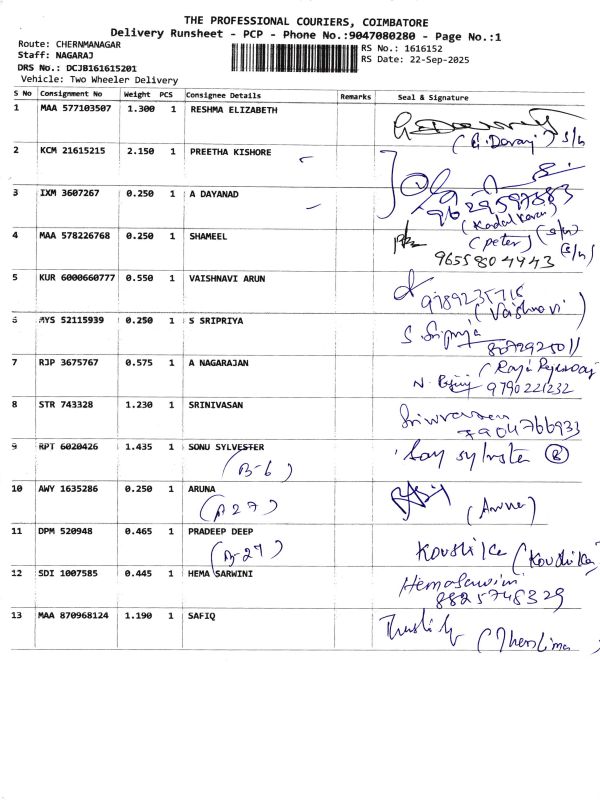 THE PROFESSIONAL COURIERS, COIMBATORE
Delivery Runsheet - PCP - Phone No.:9047080280 - Page No.:1
Route: CHERNMANAGAR
RS No.: 1616152
Staff: NAGARAJ
RS Date: 22-Sep-2025
DRS No.: DCJB161615201
Vehicle: Two Wheeler Delivery
S No Consignment No Weight PCS Consignee Details Remarks Seal & Signature
1 MAA 577103507 1.300 1 RESHMA ELIZABETH
(G. Doraj) S/n
2 KCM 21615215 2.150 1 PREETHA KISHORE
3 IXM 3607267 0.250 1 A DAYANAD
9629597883
(Kadal Karan) (S/n)
4 MAA 578226768 0.250 1 SHAMEEL
(peter) (S/n)
9655804443
5 KUR 6000660777 0.550 1 VAISHNAVI ARUN
9789235716
(Vaishnavi)
6 MYS 52115939 0.250 1 S SRIPRIYA
S. Sripriya
8072925011
7 RJP 3675767 0.575 1 A NAGARAJAN
9790221232
8 STR 743328 1.230 1 SRINIVASAN
Srinivasan
7904766933
9 RPT 6020426 1.435 1 SONU SYLVESTER
(B-6)
Sony sylvster B
10 AWY 1635286 0.250 1 ARUNA
(A 27)
(Aruna)
11 DPM 520948 0.465 1 PRADEEP DEEP
(B-27)
Koushika (Koushika)
12 SDI 1007585 0.445 1 HEMA SARWINI
Hemasarwini
8825748329
13 MAA 870968124 1.190 1 SAFIQ